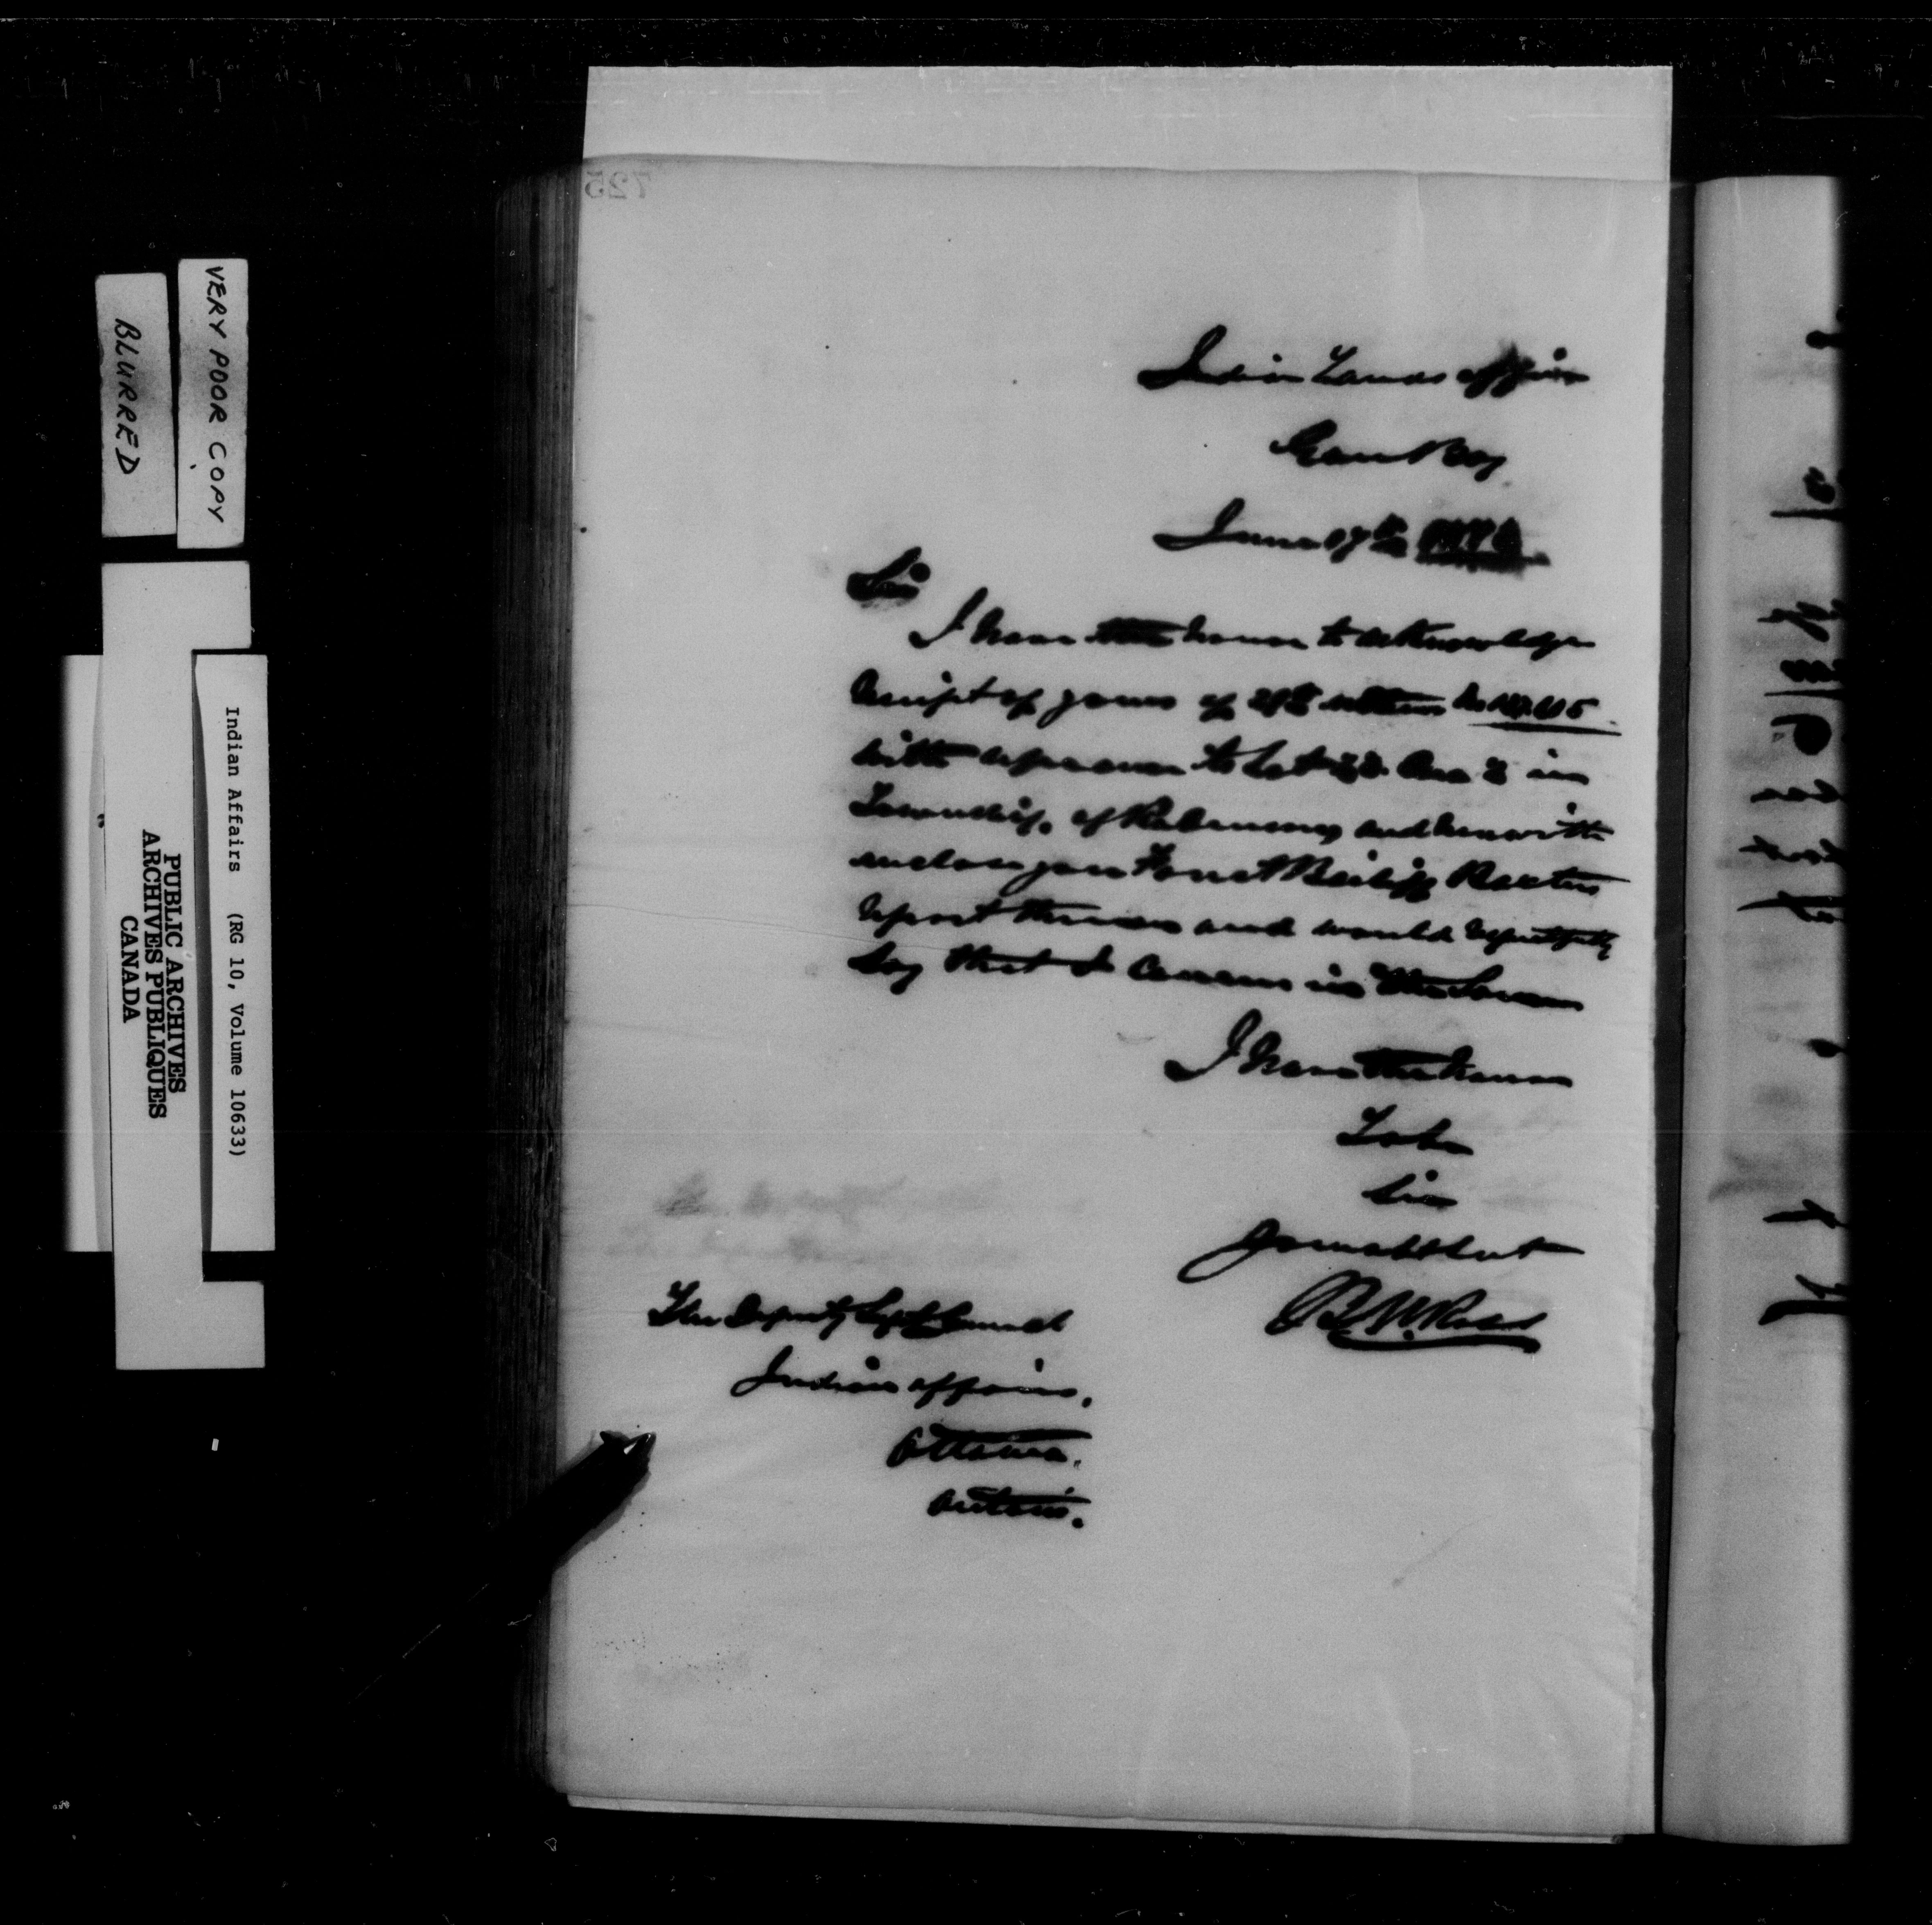 VERY POOR COPY
BLURRED
Indian Affairs (RG 10, Volume 10633)
PUBLIC ARCHIVES
ARCHIVES PUBLIQUES
CANADA
725
Indian Lands Office
Gore Bay
June 17th
Sir
I have the honor to acknowledge
receipt of yours of
with reference to Lot Con 8 in
Township of Robinson and herewith
enclose you Forest Bailiff Baxters
report thereon and would respectfully
say that I concur in the same
I have the honor
To be
Sir
your obt Svt
B. W. Ross
The Deputy Supt General
Indian affairs.
Ottawa.
Ontario.